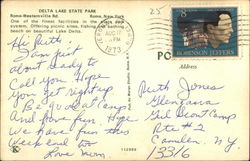 DELTA LAKE STATE PARK
Rome-Westernville Rd. Rome, New York
One of the finest facilities in the state park
system. Offering picnic areas, fishing and bathing
beach on beautiful Lake Delta.
Hi Ruth
Jam just
about ready to
Call you. Hope
you get right up
Be a good camp
and have fun. Hope
we have fun this
weekend too
Love Mom
25
AUG 17
PM
1973
8
ROBINSON JEFFERS
PO
Ruth Jones
Glengarra
Girl Scout Camp
Rte # 2
Camden, N.Y.
13316
112989